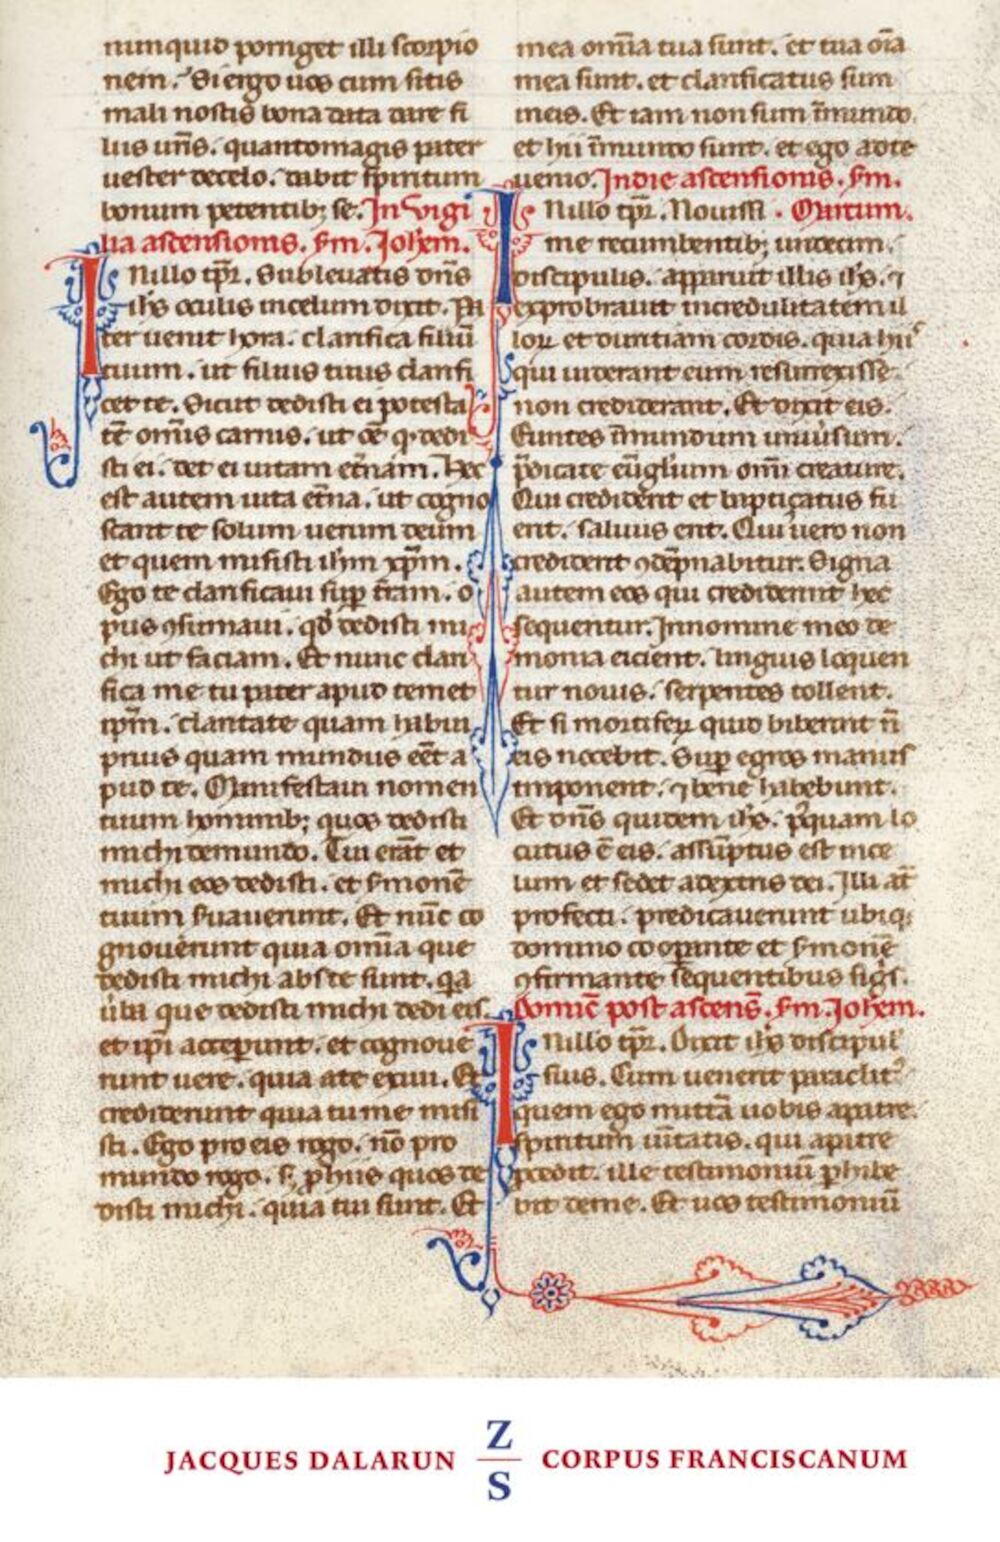 nunquid porriget illi scorpio
nem. Si ergo uos cum sitis
mali nostis bona data dare fi
liis ur̄is. quantomagis pater
uester decelo. dabit spiritum
bonum petentib; se. In uigi
lia ascensionis. s̄m. Joh̄em.
INillo tp̄r. Subleuatis dn̄s
ih̄s oculis incelum dixit. Pa
ter uenit hora. clarifica filiū
tuum. ut filius tuus clarifi
cet te. Sicut dedisti ei potesta
tē om̄is carnis. ut om̄e qd̄ dedi
sti ei. det ei uitam et̄nam. Hec
est autem uita et̄na. ut cogno
scant te solum uerum deum
et quem misisti ih̄m xp̄m.
Ego te clarificaui sup̄ t̄ram. o
pus ꝯsumaui. qd̄ dedisti mi
chi ut faciam. Et nunc clari
fica me tu pater apud temet
ip̄m. claritate quam habui
prius quam mundus eēt a
pud te. Manifestaui nomen
tuum hominib; quos dedisti
michi demundo. Tui erāt et
michi eos dedisti. et s̄monē
tuum seruauerunt. Et nūc co
gnouerunt quia om̄ia que
dedisti michi abs te sunt. q̄a
ūba que dedisti michi dedi eis.
et ip̄i acceꝑunt. et cognoue
runt uere. quia ate exiui. Et
crediderunt quia tu me misi
sti. Ego pro eis rogo. nō pro
mundo rogo. s; ꝓ hiis quos de
disti michi. quia tui sunt. Et
mea om̄ia tua sunt. et tua oīa
mea sunt. et clarificatus sum
in eis. Et iam non sum īmundo.
et hii īmundo sunt. et ego ad te
uenio. In die ascensionis. s̄m.
INillo tp̄r. Nouissi . Marcum.
me recumbentib; undecim.
discipulis. apparuit illis ih̄s. ⁊
exprobrauit incredulitatem il
loꝝ et duritiam cordis. quia hiis
qui uiderant eum resurrexisse.
non crediderant. Et dixit eis.
Euntes īmundum uniūsum.
p̄dicate eu̅gl̅ium omi creature.
Qui crediderit et baptiçatus fu
erit. saluus erit. Qui uero non
crediderit ꝯdēpnabitur. Signa
autem eos qui crediderint hec
sequentur. Innomine meo de
monia eicient. linguis loquen
tur nouis. serpentes tollent.
Et si mortiferꝝ quid biberint n̄
eis nocebit. Sup̄ egros manus
imponent. ⁊ bene habebunt.
Et dn̄s quidem ih̄s. p̄quam lo
cutus ē eis. assūptus est ince
lum et sedet adextris dei. Illi at̄
profecti. predicauerunt ubiq;
domino cooꝑante et s̄monē
ꝯfirmante sequentibus sig̅s.
Domic̄ post ascens̄. s̄m. Joh̄em.
INillo tp̄r. Dixit ih̄s discipul'
suis. Cum uenerit paraclit⁹
quem ego mittā uobis apatre.
spiritum ūitatis. qui apatre
ꝓcedit. ille testimoniū ꝑhibe
bit deme. Et uos testimoniū
JACQUES DALARUN
Z
S
CORPUS FRANCISCANUM